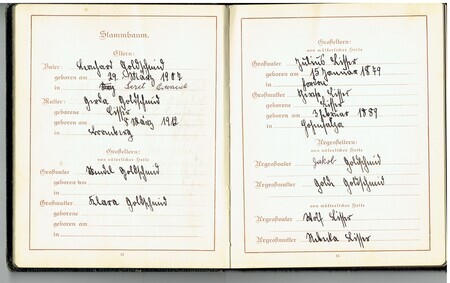 Stammbaum.
Eltern:
Vater: Leonhard Goldschmid
geboren am 29. März 1907
in
Mutter: Gerda Goldschmid
geborene Lisser
geboren am 8 März 1912
in Bromberg
Großeltern:
von väterlicher Seite
Großvater Mendel Goldschmid
geboren am
in
Großmutter Klara Goldschmid
geborene
geboren am
in
Großeltern:
von mütterlicher Seite
Großvater Julius Lisser
geboren am 15 Januar 1879
in Fordon
Großmutter Lisser
geborene Lisser
geboren am 3 Februar 1889
in Hohensalza
Urgroßeltern:
von väterlicher Seite
Urgroßvater Jakob Goldschmid
Urgroßmutter Golde Goldschmid
von mütterlicher Seite
Urgroßvater Wolf Lisser
Urgroßmutter Rebeka Lisser